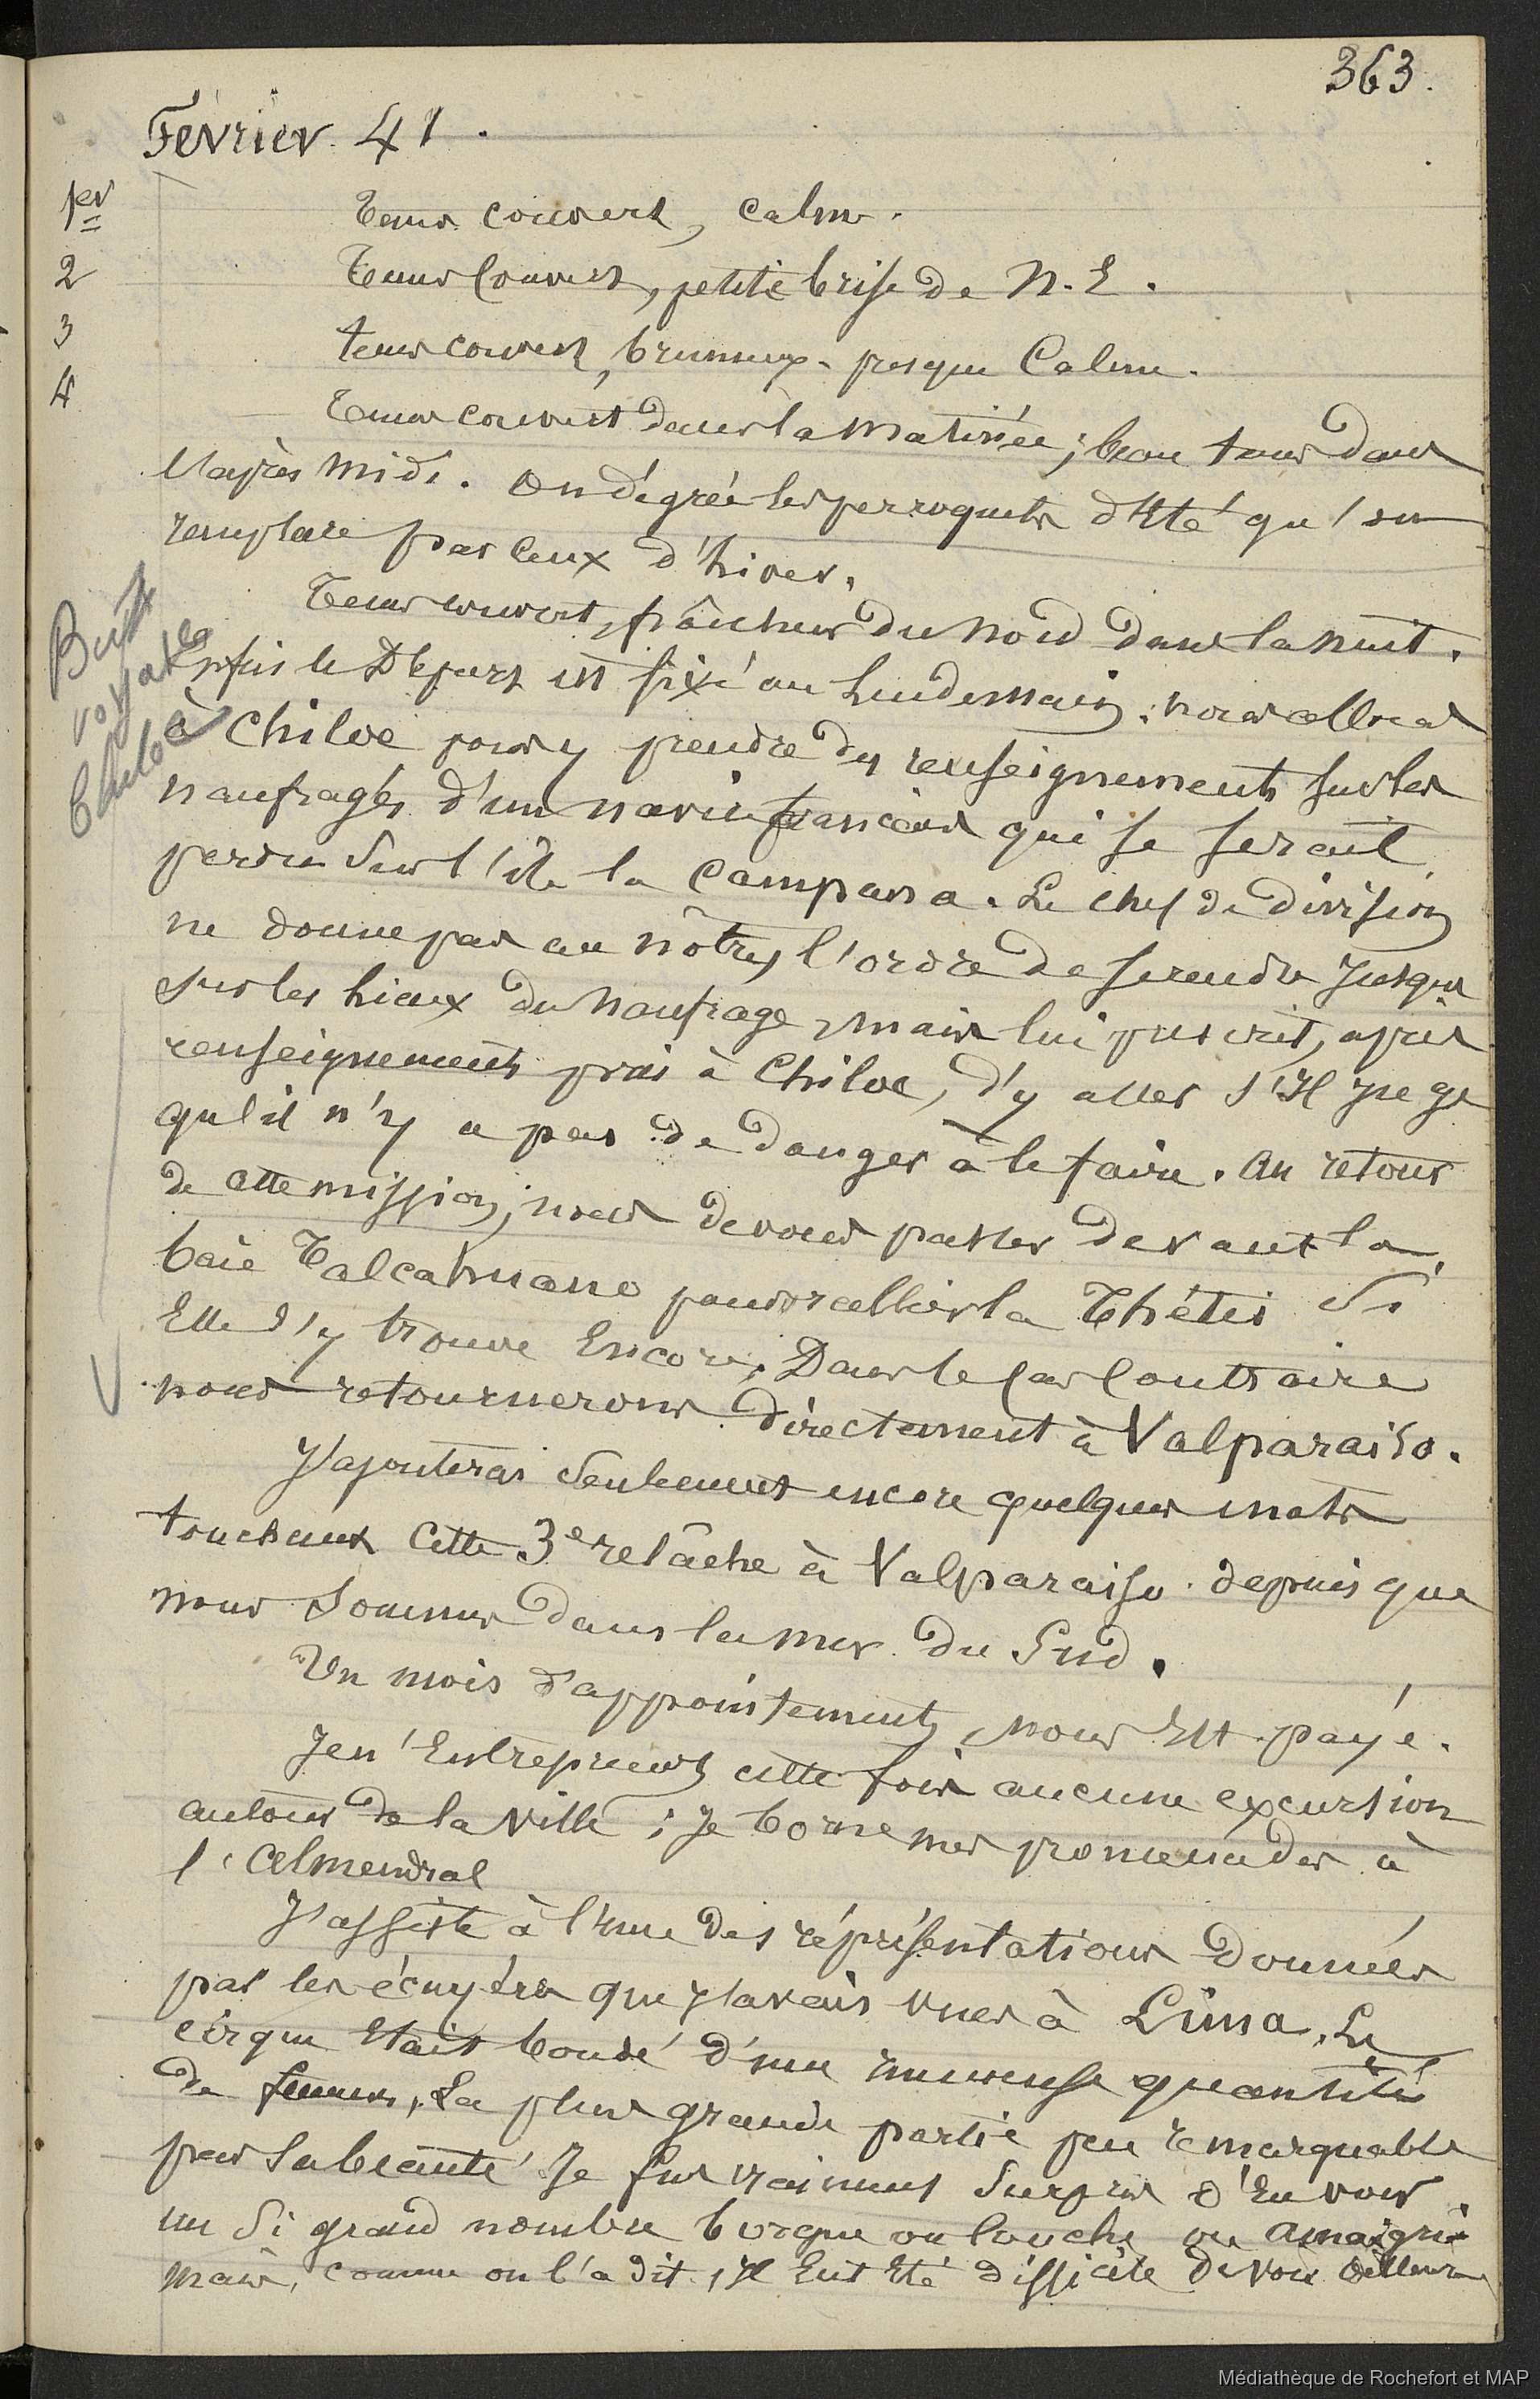 363.
Février 41.
1er Tems couvert, calme.
2 Tems couvert, petite brise de N.E.
3 tems couvert, brumeux. presque Calme.
4 Tems couvert dans la matinée; beau tems dans
l'après midi. On dégrée les perroquets d'Eté qu'on
remplace par ceux d'hiver.
Tems couvert, fraîcheur du nord dans la nuit.
But
voyage
Chiloé
Enfin le Départ est fixé au lendemain: nous allons
à Chiloe pour y prendre des renseignements sur les
naufragés d'un navire français qui se serait
perdu sur l'île la Campana. Le chef de division
ne donne pas au nôtre, l'ordre de se rendre jusque
sur les lieux du naufrage, mais lui prescrit, après
renseignements pris à Chiloe, d'y aller s'Il juge
qu'il n'y a pas de danger à le faire. Au retour
de cette mission, nous devons passer devant la
baie Talcahuano pour rallier la Thétis si
Elle s'y trouve Encore. Dans le cas Contraire
nous retournerons directement à Valparaiso.
J'ajouterai seulement encore quelques mots
touchant Cette 3e relâche à Valparaiso depuis que
nous sommes dans la mer du Sud.
Un mois d'appointements nous Est payé.
Je n'Entreprends cette fois aucune excursion
autour de la ville; je borne mes promenades à
l'Almendral
J'assiste à l'une des réprésentations données
par les écuyères que j'avais vues à Lima. Le
cirque était bondé d'une immense quantité
de femmes, La plus grande partie peu remarquable
par sa beauté. Je fus vraiment surpris d'En voir
un si grand nombre borgne ou louche ou amaigrie
mais, comme on l'a dit, Il Eut Eté difficile de voir
Médiathèque de Rochefort et MAP